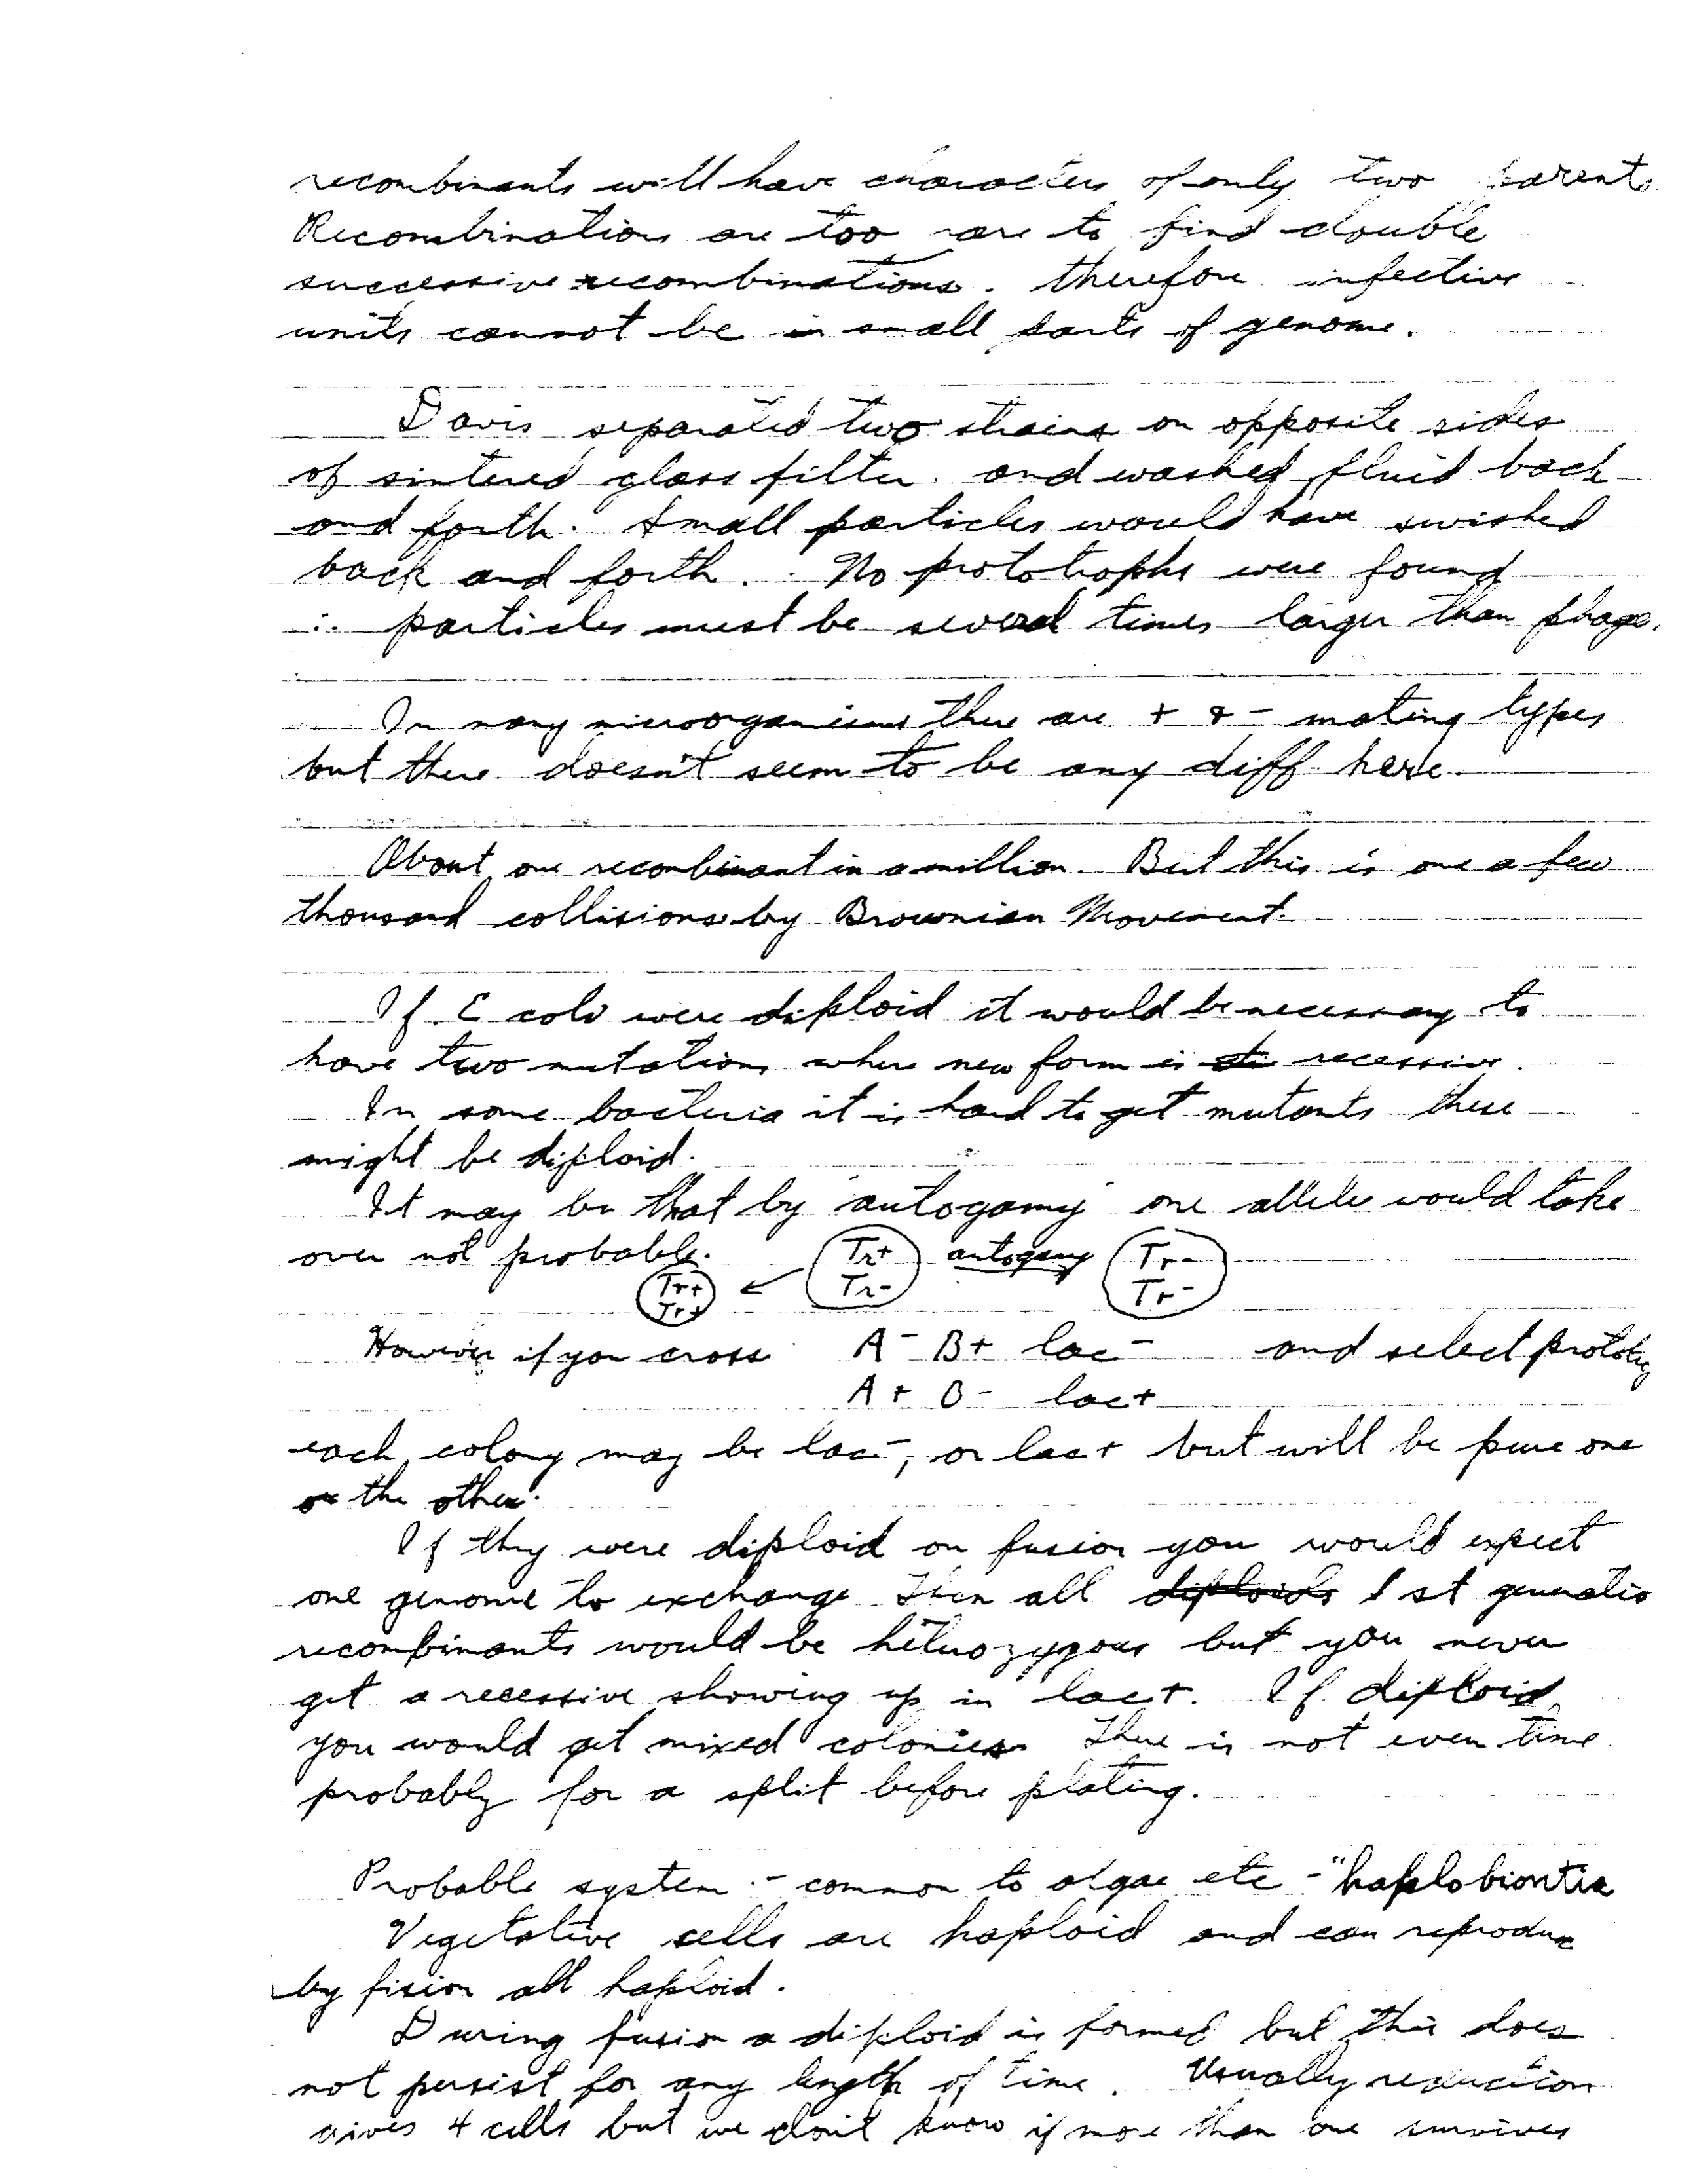 recombinants will have characters of only two parents
Recombinations are too rare to find double
successive recombinations. therefore infective
units cannot be small parts of genome.
Davis separated two strains on opposite sides
of sintered glass filter. and washed fluid back
and forth. Small particles would have swished
back and forth. No prototrophs were found
∴ particles must be several times larger than phage.
In many microorganisms there are + & - mating types
but there doesn't seem to be any diff here.
About one recombinant in a million. But this is one a few
thousand collisions by Brownian Movement.
If E coli were diploid it would be necessary to
have two mutations where new form is recessive.
In some bacteria it is hard to get mutants these
might be diploid.
It may be that by "autogamy" one allele would take
over not probable.
Tr+ autogamy Tr-
Tr- Tr-
Tr+ ←
Tr+
However if you cross A- B+ lac- and select prototr
A+ B- lac+
each colony may be lac-, or lac+ but will be pure one
or the other.
If they were diploid on fusion you would expect
one genome to exchange Then all diploids 1st generatio
recombinants would be heterozygous but you never
get a recessive showing up in lac+. If diploid
you would get mixed colonies. There is not even time
probably for a split before plating.
Probable system - common to algae etc - "haplobiontic
Vegetative cells are haploid and can reproduce
by fision all haploid.
During fusion a diploid is formed but this does
not persist for any length of time. Usually reduction
gives 4 cells but we don't know if more than one survives